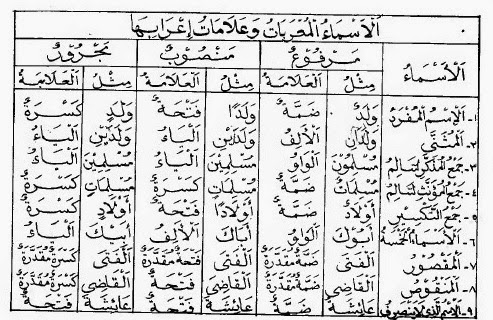 اَلْأَسْمَاءُ الْمُعْرَبَاتُ وَعَلَامَاتُ إِعْرَابِهَا
اَلْأَسْمَاءُ مَرْفُوْعٌ مَنْصُوْبٌ مَجْرُوْرٌ
مِثْلُ اَلْعَلَامَةُ مِثْلُ اَلْعَلَامَةُ مِثْلُ اَلْعَلَامَةُ
١- اَلْإِسْمُ الْمُفْرَدُ وَلَدٌ ضَمَّةٌ وَلَدًا فَتْحَةٌ وَلَدٍ كَسْرَةٌ
٢- اَلْمُثَنَّى وَلَدَانِ اَلْأَلِفُ وَلَدَيْنِ اَلْيَاءُ وَلَدَيْنِ اَلْيَاءُ
٣- جَمْعُ الْمُذَكَّرِ السَّالِمُ مُسْلِمُوْنَ اَلْوَاوُ مُسْلِمِيْنَ اَلْيَاءُ مُسْلِمِيْنَ اَلْيَاءُ
٤- جَمْعُ الْمُؤَنَّثِ السَّالِمُ مُسْلِمَاتٌ ضَمَّةٌ مُسْلِمَاتٍ كَسْرَةٌ مُسْلِمَاتٍ كَسْرَةٌ
٥- جَمْعُ التَّكْسِيْرِ أَوْلَادٌ ضَمَّةٌ أَوْلَادًا فَتْحَةٌ أَوْلَادٍ كَسْرَةٌ
٦- اَلْأَسْمَاءُ الْخَمْسَةُ أَبُوْكَ اَلْوَاوُ أَبَاكَ اَلْأَلِفُ أَبِيْكَ اَلْيَاءُ
٧- اَلْمَقْصُوْرُ اَلْفَتَى ضَمَّةٌ مُقَدَّرَةٌ اَلْفَتَى فَتْحَةٌ مُقَدَّرَةٌ اَلْفَتَى كَسْرَةٌ مُقَدَّرَةٌ
٨- اَلْمَنْقُوْصُ اَلْقَاضِي ضَمَّةٌ مُقَدَّرَةٌ اَلْقَاضِيَ فَتْحَةٌ اَلْقَاضِي كَسْرَةٌ مُقَدَّرَةٌ
٩- اَلْإِسْمُ الَّذِي لَا يَنْصَرِفُ عَائِشَةُ ضَمَّةٌ عَائِشَةَ فَتْحَةٌ عَائِشَةَ فَتْحَةٌ